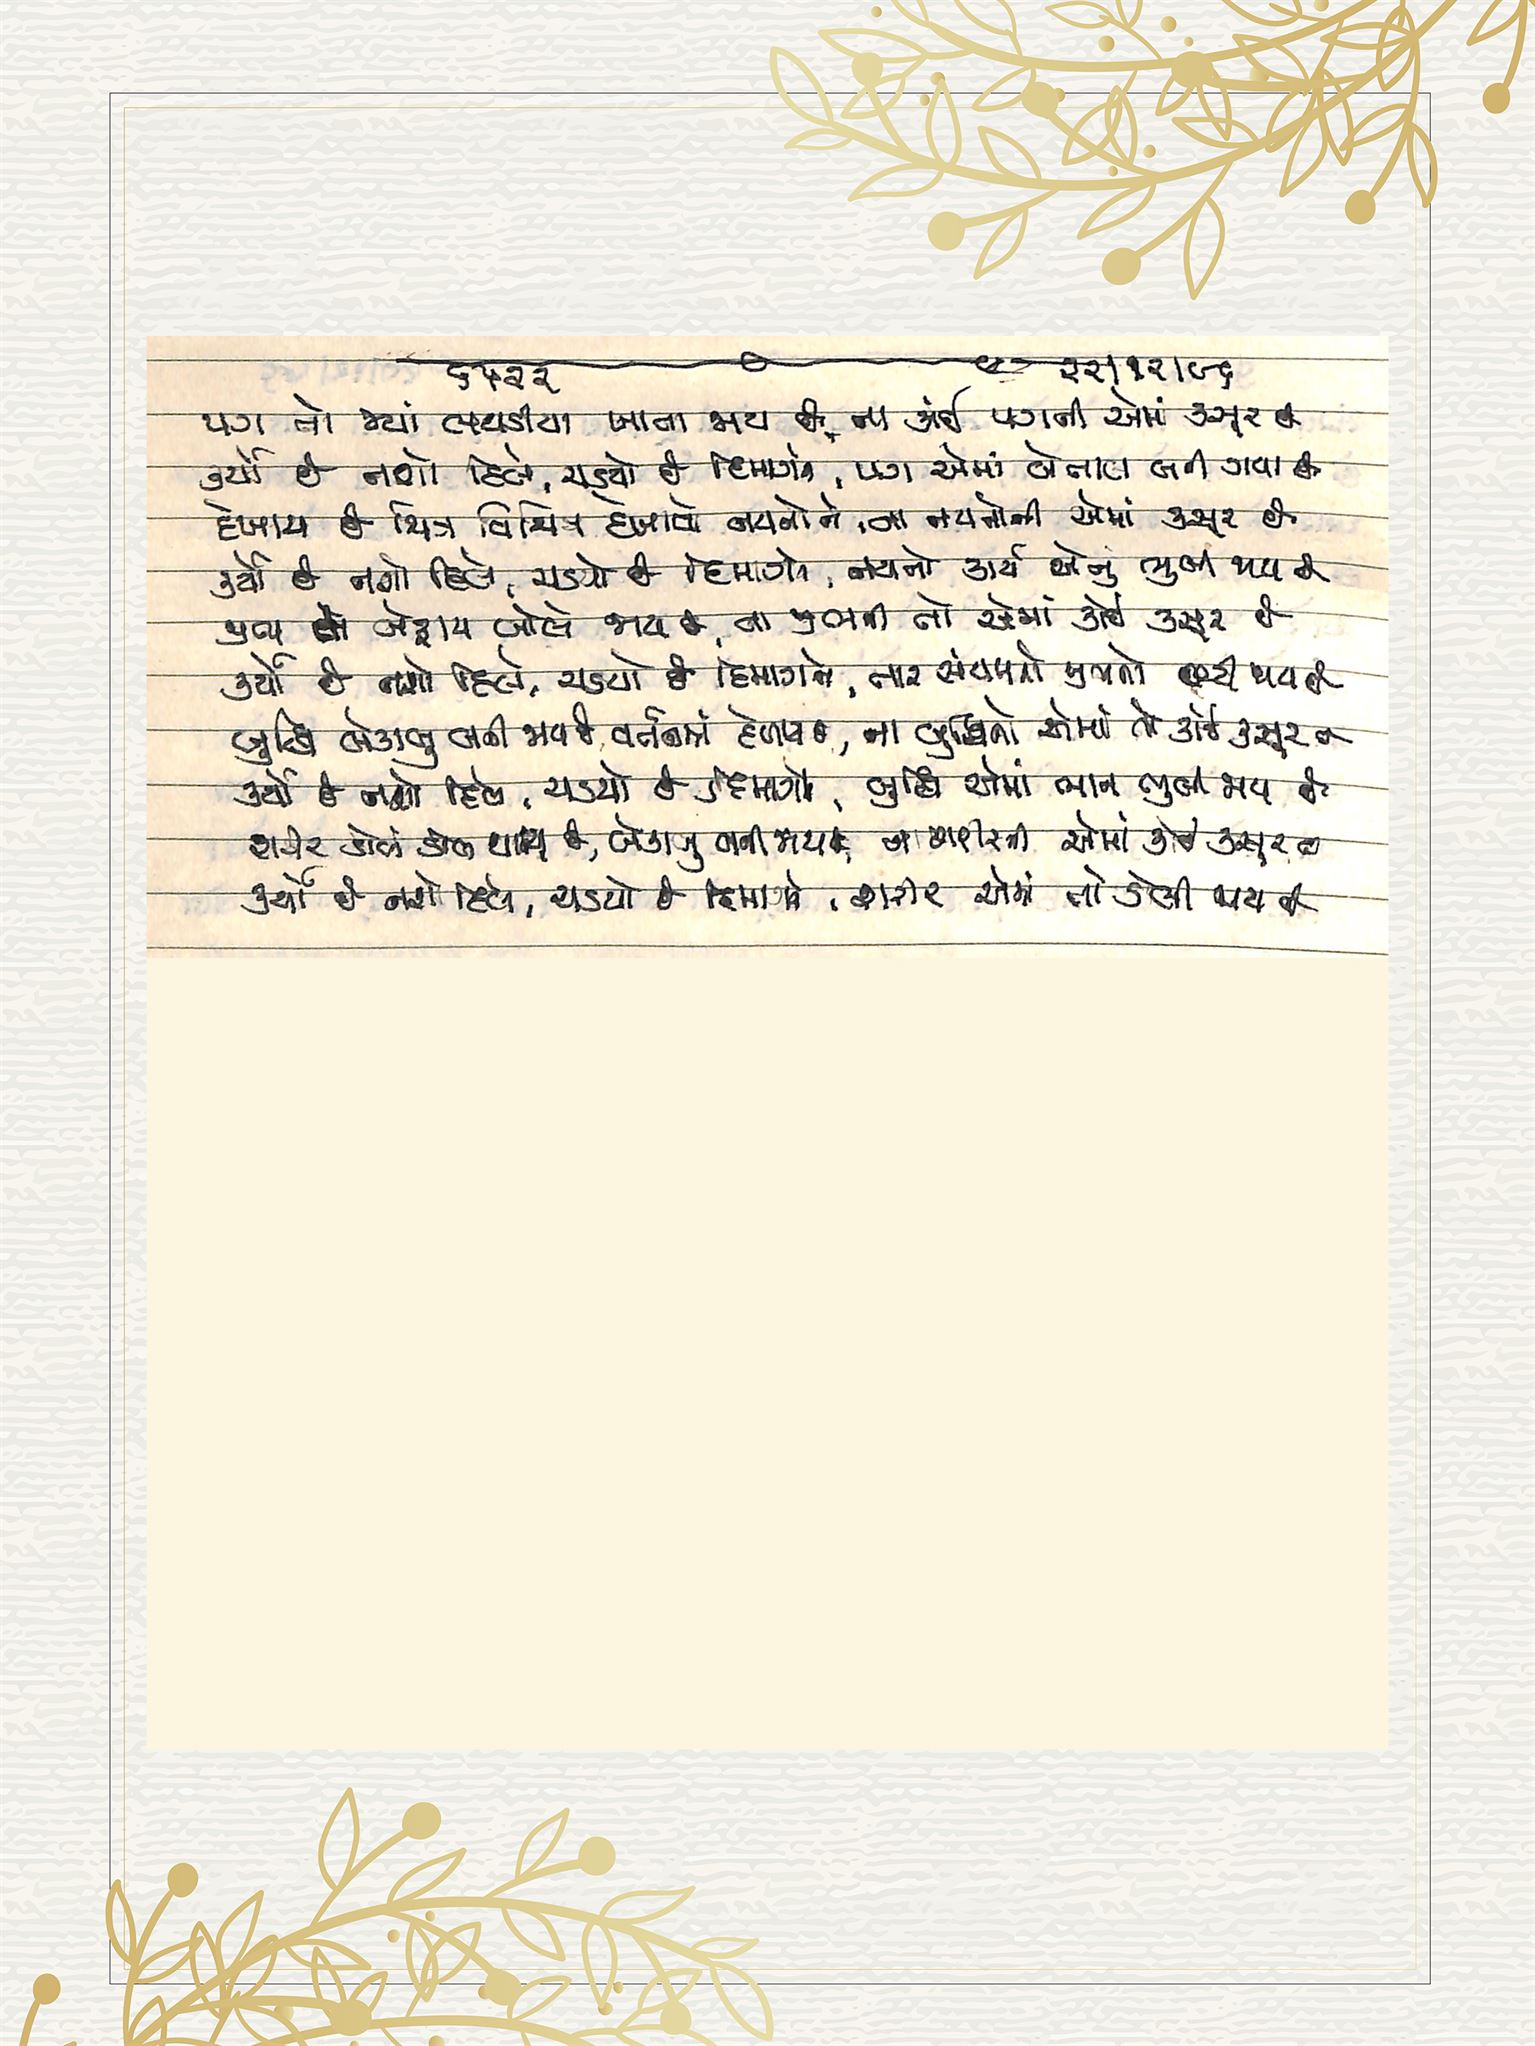 ૬૫૨૨ ૨૨|૧૨|૮૬
પગ તો જ્યાં લથડીયા ખાતા જાય છે, ના કાંઈ પગની એમાં કસૂર છે
કર્યો છે નશો દિલે, ચડયો છે દિમાગને, પગ એમાં બેતાલ બની ગયા છે
દેખાય છે ચિત્ર વિચિત્ર દેખાવો નયનોને, ના નયનોની એમાં કસૂર છે
કર્યો છે નશો દિલે, ચડયો છે દિમાગને, નયનો કાર્ય એનું ભુલી જાય છે
જીભ બેફામ બોલે જાય છે, ના જીભની તો એમાં કોઈ કસૂર છે
કર્યો છે નશો દિલે, ચડયો છે દિમાગને, તાર સંયમનો જીભનો તૂટી જાય છે
બુદ્ધિ બેકાબુ બની જાય છે વર્તનમાં દેખાય છે, ના બુદ્ધિનો એમાં તો કોઈ કસૂર છે
કર્યો છે નશો દિલે, ચડયો છે દિમાગને, બુદ્ધિ એમાં ભાન ભુલી જાય છે
શરીર ડોલમ ડોલ થાય છે, બેકાબુ બની જાય છે, ના શરીરની એમાં કોઈ કસૂર છે
કર્યો છે નશો દિલે, ચડયો છે દિમાગને, શરીર એમાં તો ડોલી જાય છે